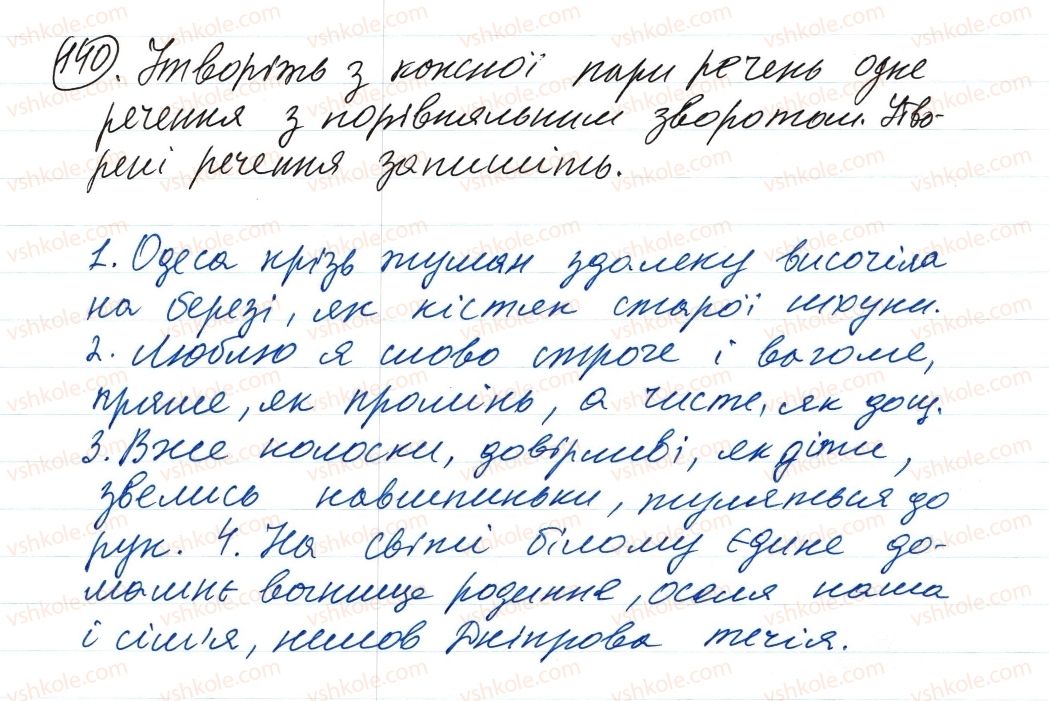 140. Утворіть з кожної пари речень одне
речення з порівняльним зворотом. Утво-
рені речення запишіть.
1. Одеса крізь туман здалеку височіла
на березі, як кістяк старої шхуни.
2. Люблю я слово строге і вагоме,
пряме, як промінь, а чисте, як дощ.
3. Вже колоски, довірливі, як діти,
звелись навшпиньки, туляться до
рук. 4. На світі білому єдине до-
машнє вогнище родинне, оселя наша
і сім'я, немов Дніпрова течія.